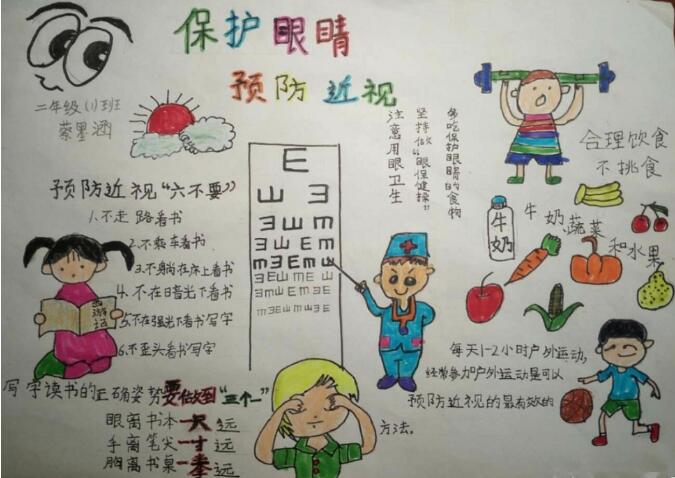 保护眼睛
预防近视
二年级(1)班
蔡墨涵
预防近视“六不要”
1.不走路看书
2.不乘车看书
3.不躺在床上看书
4.不在暗光下看书
5.不在强光下看书写字
6.不歪头看书写字
西游记
写字读书的正确姿势要做到“三个一”
眼离书本一尺远
手离笔尖一寸远
胸离书桌一拳远
E
ш ᴟ
多吃保护眼睛的食物
坚持做“眼保健操”
注意用眼卫生
合理饮食
不挑食
牛奶
牛奶蔬菜
和水果
每天1-2小时户外运动,
经常参加户外运动是可以
预防近视的最有效的
方法。